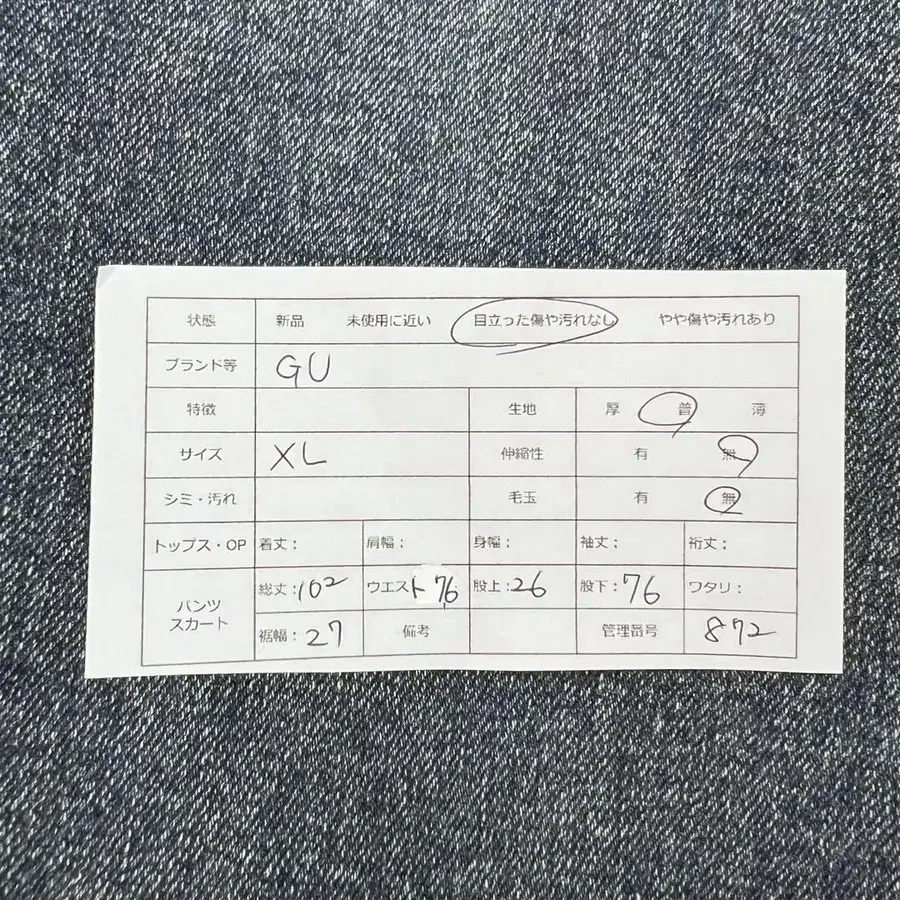 状態 新品 未使用に近い 目立った傷や汚れなし やや傷や汚れあり
ブランド等 GU
特徴 生地 厚 普 薄
サイズ XL 伸縮性 有 無
シミ・汚れ 毛玉 有 無
トップス・OP 着丈: 肩幅: 身幅: 袖丈: 裄丈:
パンツ スカート 総丈:102 ウエスト 76 股上:26 股下:76 ワタリ:
裾幅:27 備考 管理番号 872